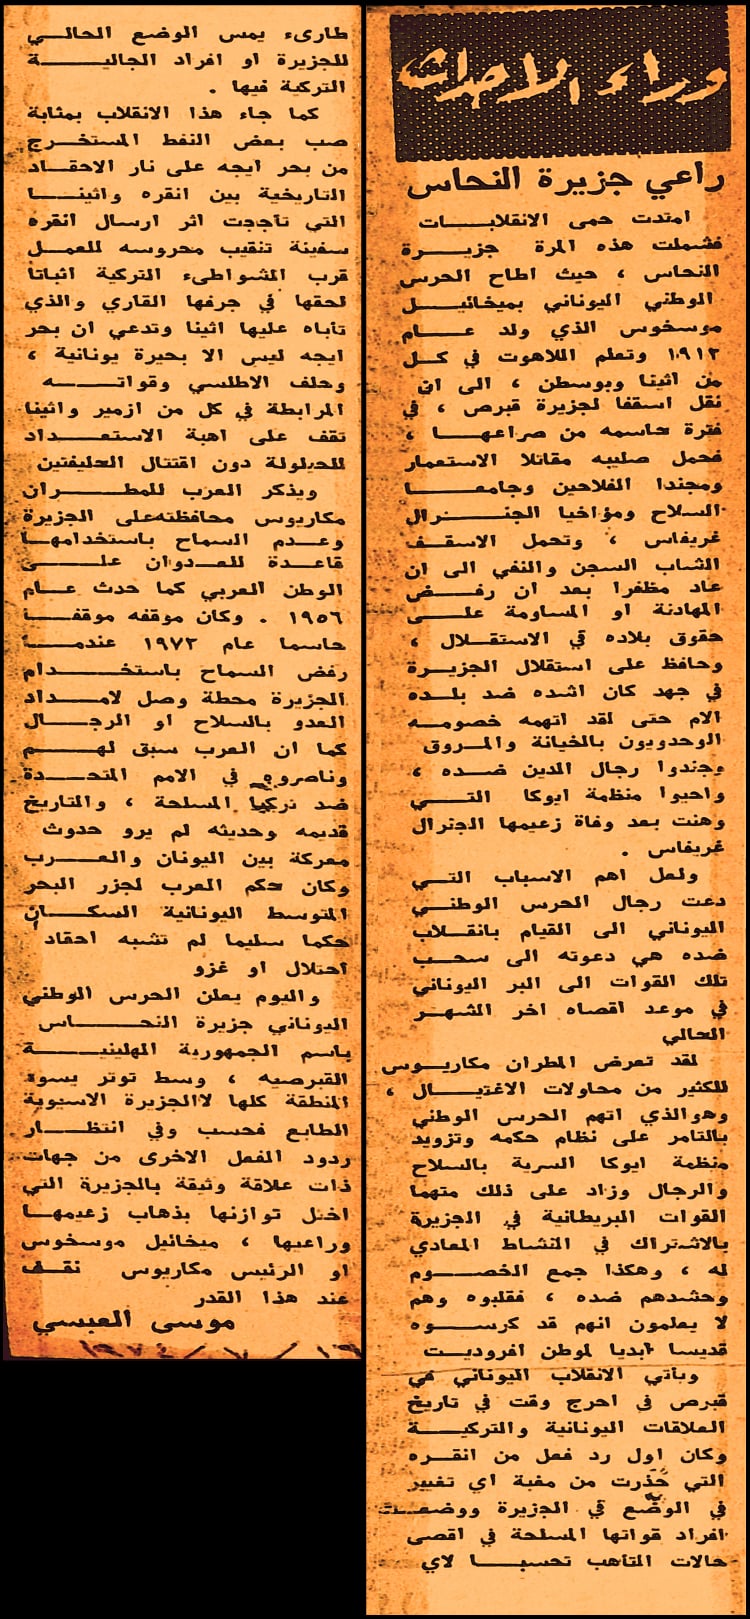 وراء الاحداث
راعي جزيرة النحاس
امتدت حمى الانقلابـــات
فشملت هذه المرة جزيـــرة
النحاس ، حيث اطاح الحرس
الوطني اليوناني بميخائيـــل
موسخوس الذي ولد عـــام
١٩١٣ وتعلم اللاهوت في كــل
من اثينا وبوسطن ، الى ان
نقل اسقفا لجزيرة قبرص ، في
فترة حاسمه من صراعهـــا ،
فحمل صليبه مقاتلا الاستعمار
ومجندا الفلاحين وجامعـــا
السلاح ومؤاخيا الجنـــرال
غريفاس ، وتحمل الاسقــف
الشاب السجن والنفي الى ان
عاد مظفرا بعد ان رفـــض
المهادنة او المساومة علـــى
حقوق بلاده في الاستقــلال ،
وحافظ على استقلال الجزيـرة
في جهد كان اشده ضد بلــده
الام حتى لقد اتهمه خصومــه
الوحدويون بالخيانة والمــروق
وجندوا رجال الدين ضــده ،
واحيوا منظمة ايوكا التـــي
وهنت بعد وفاة زعيمها الجنرال
غريفاس .
ولعل اهم الاسباب التــي
دعت رجال الحرس الوطنــي
اليوناني الى القيام بانقــلاب
ضده هي دعوته الى سحــب
تلك القوات الى البر اليوناني
في موعد اقصاه اخر الشهـر
الحالي
لقد تعرض المطران مكاريـوس
للكثير من محاولات الاغتيــال ،
وهوالذي اتهم الحرس الوطني
بالتامر على نظام حكمه وتزويد
منظمة ايوكا السرية بالسلاح
والرجال وزاد على ذلك متهما
القوات البريطانية في الجزيرة
بالاشتراك في النشاط المعادي
له ، وهكذا جمع الخصـــوم
وحشدهم ضده ، فقلبوه وهم
لا يعلمون انهم قد كرســـوه
قديسا ابديا لموطن افروديــت
ويأتي الانقلاب اليوناني في
قبرص في احرج وقت في تاريخ
العلاقات اليونانية والتركيـــة
وكان اول رد فعل من انقــره
التي حَذّرت من مغبة اي تغيير
في الوضع في الجزيرة ووضعــت
افراد قواتها المسلحة في اقصى
حالات التأهب تحسبـــا لاي
طارىء يمس الوضع الحالــي
للجزيرة او افراد الجاليـــة
التركية فيها .
كما جاء هذا الانقلاب بمثابة
صب بعض النفط المستخــرج
من بحر ايجه على نار الاحقـاد
التاريخية بين انقره واثينــا
التي تأججت اثر ارسال انقره
سفينة تنقيب محروسه للعمــل
قرب الشواطىء التركية اثباتا
لحقها في جرفها القاري والذي
تأباه عليها اثينا وتدعي ان بحر
ايجه ليس الا بحيرة يونانية ،
وحلف الاطلسي وقواتـــه
المرابطة في كل من ازمير واثينا
تقف على اهبة الاستعــداد
للحيلولة دون اقتتال الحليفتين
ويذكر العرب للمطــران
مكاريوس محافظته على الجزيرة
وعــدم السماح باستخدامهـا
قاعــدة للعــدوان علـــى
الوطن العربي كما حدث عــام
١٩٥٦ . وكان موقفه موقفــا
حاسما عام ١٩٧٣ عندمـــا
رفض السماح باستخـــدام
الجزيرة محطة وصل لامــداد
العدو بالسلاح او الرجــال
كما ان العرب سبق لهـــم
وناصروه في الامم المتحـــدة
ضد تركيا المسلحة ، والتاريخ
قديمه وحديثه لم يرو حدوث
معركة بين اليونان والعــرب
وكان حكم العرب لجزر البحر
المتوسط اليونانية السكــان
حكما سليما لم تشبه احقاد
احتلال او غزو
واليوم يعلن الحرس الوطني
اليوناني جزيرة النحـــاس
باسم الجمهورية الهلينيـــة
القبرصيه ، وسط توتر يسود
المنطقة كلها لاالجزيرة الاسيوية
الطابع فحسب وفي انتظــار
ردود الفعل الاخرى من جهات
ذات علاقة وثيقة بالجزيرة التي
اختل توازنها بذهاب زعيمهـا
وراعيها ، ميخائيل موسخوس
او الرئيس مكاريوس نقــف
عند هذا القدر
موسى العبسي